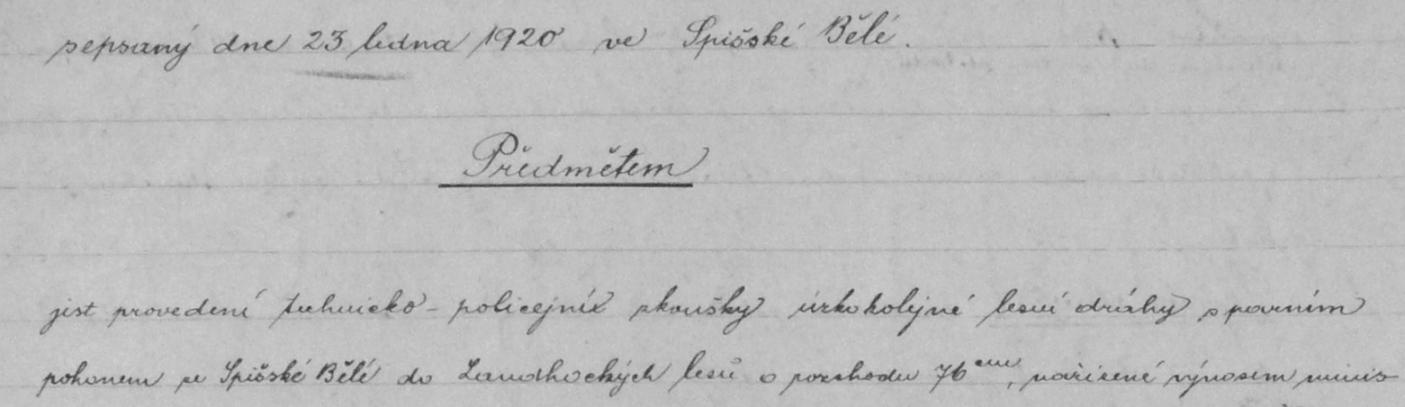 sepsaný dne 23 ledna 1920 ve Spišské Bělé.
Předmětem
jest provedení technicko-policejníx zkoušky úzkokolejné lesní dráhy s parním
pohonem ze Spišské Bělé do Landhockých lesů o rozchodu 76 cm, nařízené výnosem minis